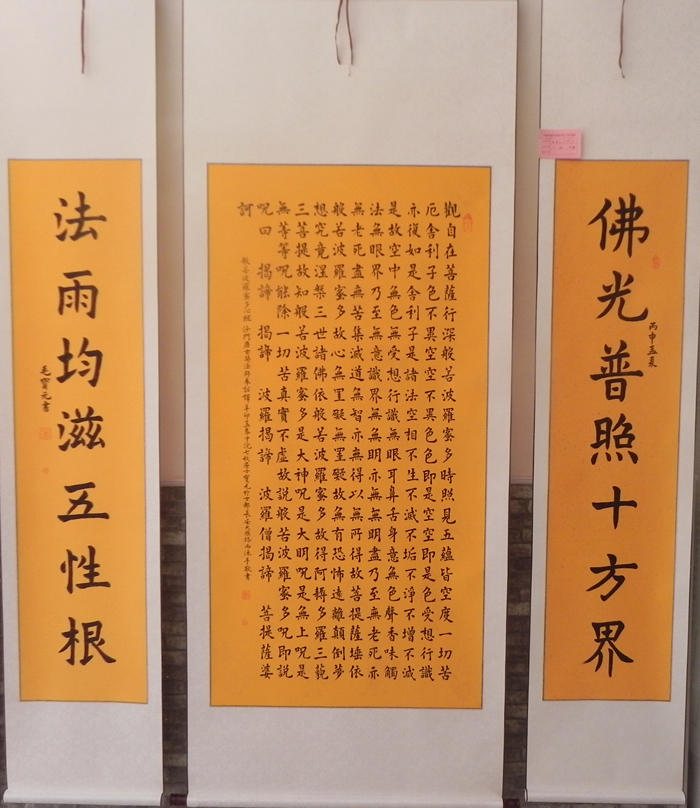 佛光普照十方界
丙申孟夏
觀自在菩薩行深般若波羅蜜多時照見五蘊皆空度一切苦
厄舍利子色不異空空不異色色即是空空即是色受想行識
亦復如是舍利子是諸法空相不生不滅不垢不淨不增不減
是故空中無色無受想行識無眼耳鼻舌身意無色聲香味觸
法無眼界乃至無意識界無無明亦無無明盡乃至無老死亦
無老死盡無苦集滅道無智亦無得以無所得故菩提薩埵依
般若波羅蜜多故心無罣礙無罣礙故無有恐怖遠離顛倒夢
想究竟涅槃三世諸佛依般若波羅蜜多故得阿耨多羅三藐
三菩提故知般若波羅蜜多是大神呪是大明呪是無上呪是
無等等呪能除一切苦真實不虛故說般若波羅蜜多呪即說
呪曰 揭諦 揭諦 波羅揭諦 波羅僧揭諦 菩提薩婆
訶
般若波羅蜜多心經 沙門唐玄奘法師奉詔譯
法雨均滋五性根
毛寶元書